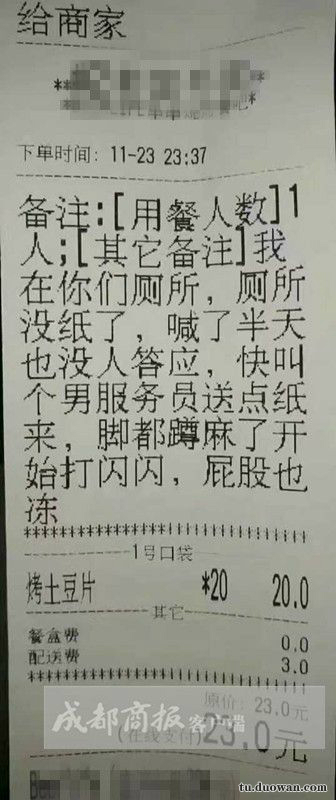 给商家
下单时间：11-23 23:37
备注:[用餐人数]1
人;[其它备注]我
在你们厕所，厕所
没纸了，喊了半天
也没人答应，快叫
个男服务员送点纸
来，脚都蹲麻了开
始打闪闪，屁股也
冻
1号口袋
烤土豆片 *20 20.0
其它
餐盒费 0.0
配送费 3.0
原价：23.0元
(在线支付)23.0元
成都商报客户端
tu.duowan.com